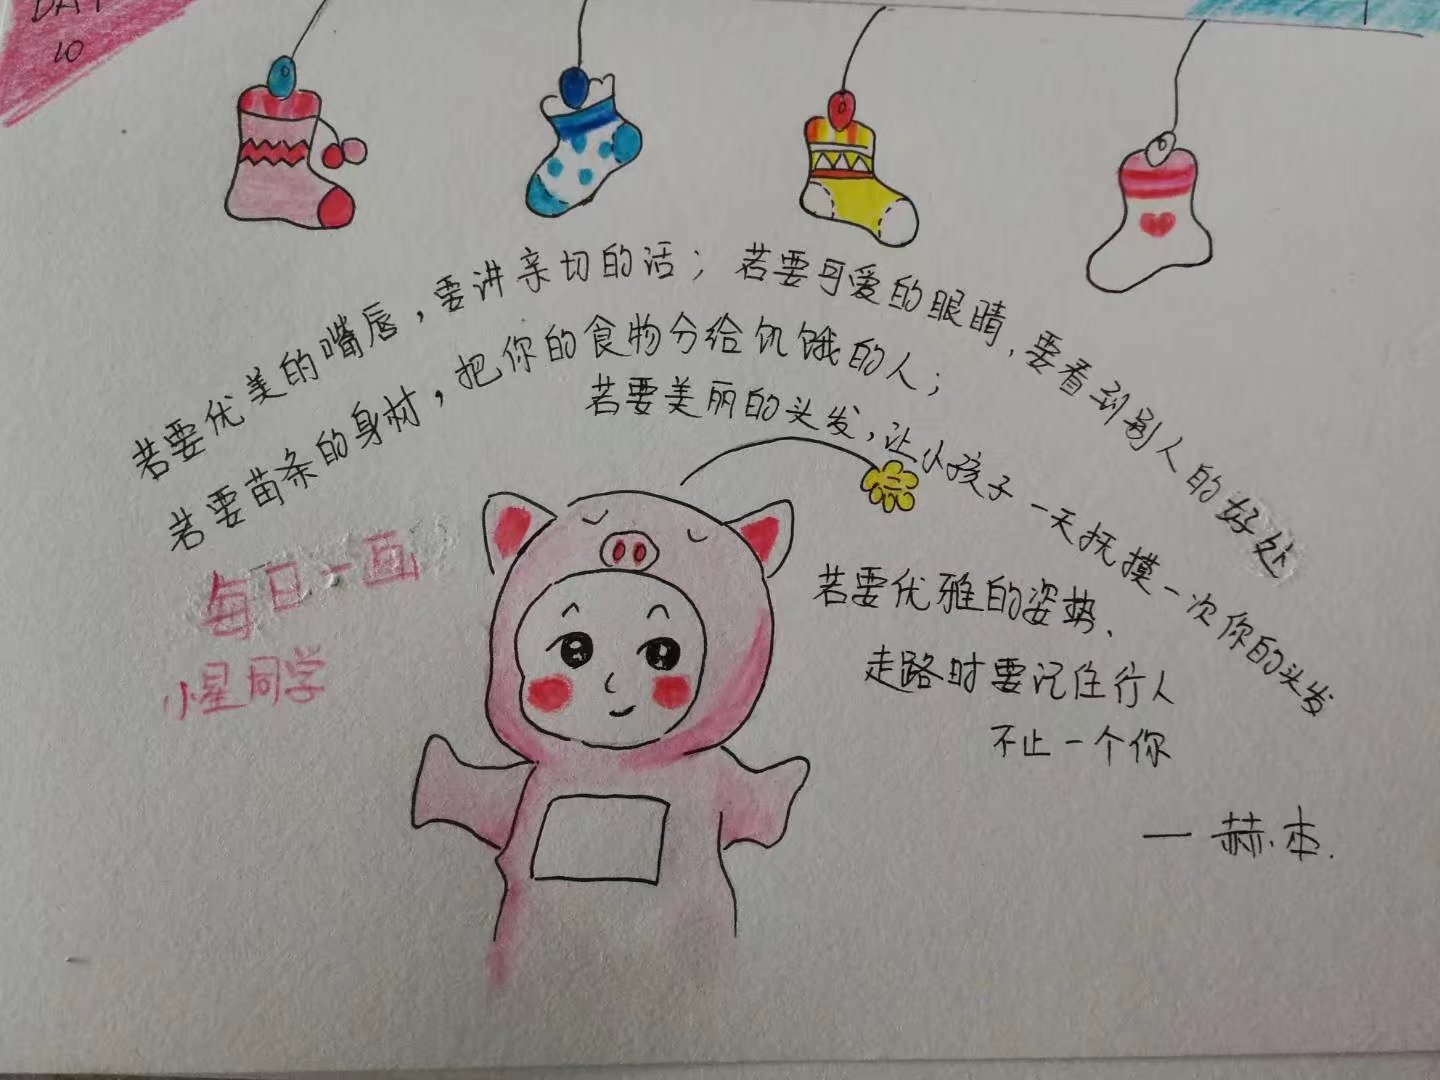 DAY
10
若要优美的嘴唇，要讲亲切的话；若要可爱的眼睛，要看到别人的好处
若要苗条的身材，把你的食物分给饥饿的人；
若要美丽的头发，让小孩子一天抚摸一次你的头发
若要优雅的姿势、
走路时要记住行人
不止一个你
一赫·本.
每日一画
小星同学